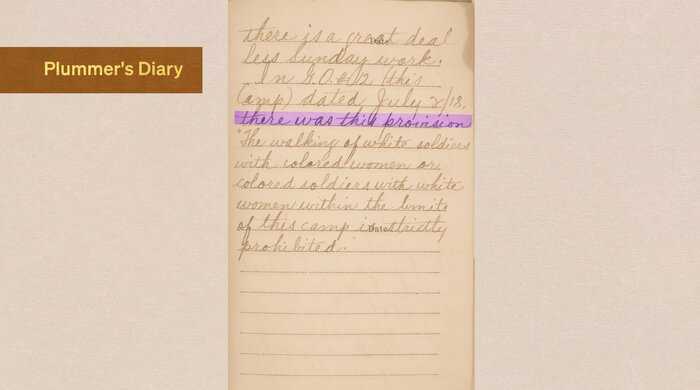 Plummer's Diary
there is a great deal
less Sunday work.
In G.O. 62 (this
Camp) dated July 2/18,
there was this provision
"The walking of white soldiers
with colored women or
colored soldiers with white
women within the limits
of this camp is strictly
prohibited."